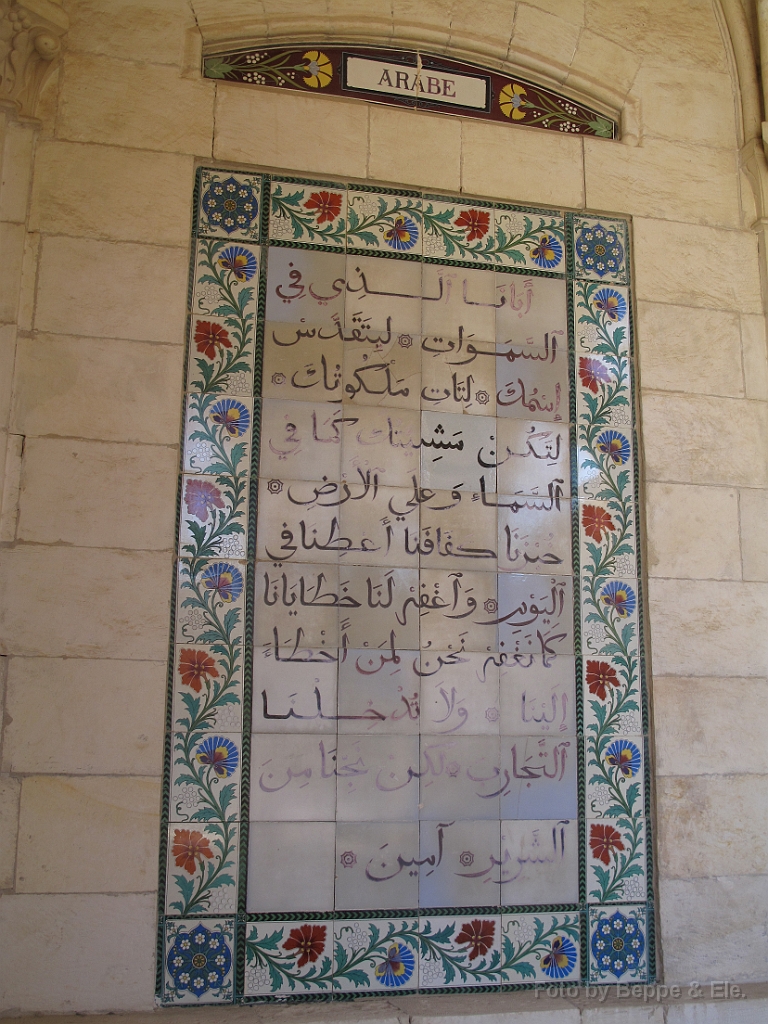 ARABE
أَبَانَا الَّذِي فِي
ٱلسَّمَوَاتِ لِيَتَقَدَّسْ
إِسْمُكَ لِتَاتِ مَلَكُوتُكَ
لِتَكُنْ مَشِيتُكَ كَمَا فِي
ٱلسَّمَاء وَعَلَي الْأَرْضِ
خُبْزَنَا كَفَافَنَا أَعطِنا في
ٱلْيَوْمِ وَٱغْفِرْ لَنَا خَطَايَانَا
كَمَا نَغْفِرْ نَحْنُ لِمَنْ أَخْطَاءَ
إِلَيْنَا وَلَا تُدْخِلْنَا
ٱلتَّجَارِبِ لَكِنْ نَجِّنَا مِنَ
ٱلشَّرِيرِ آمِينَ
Foto by Beppe & Ele.